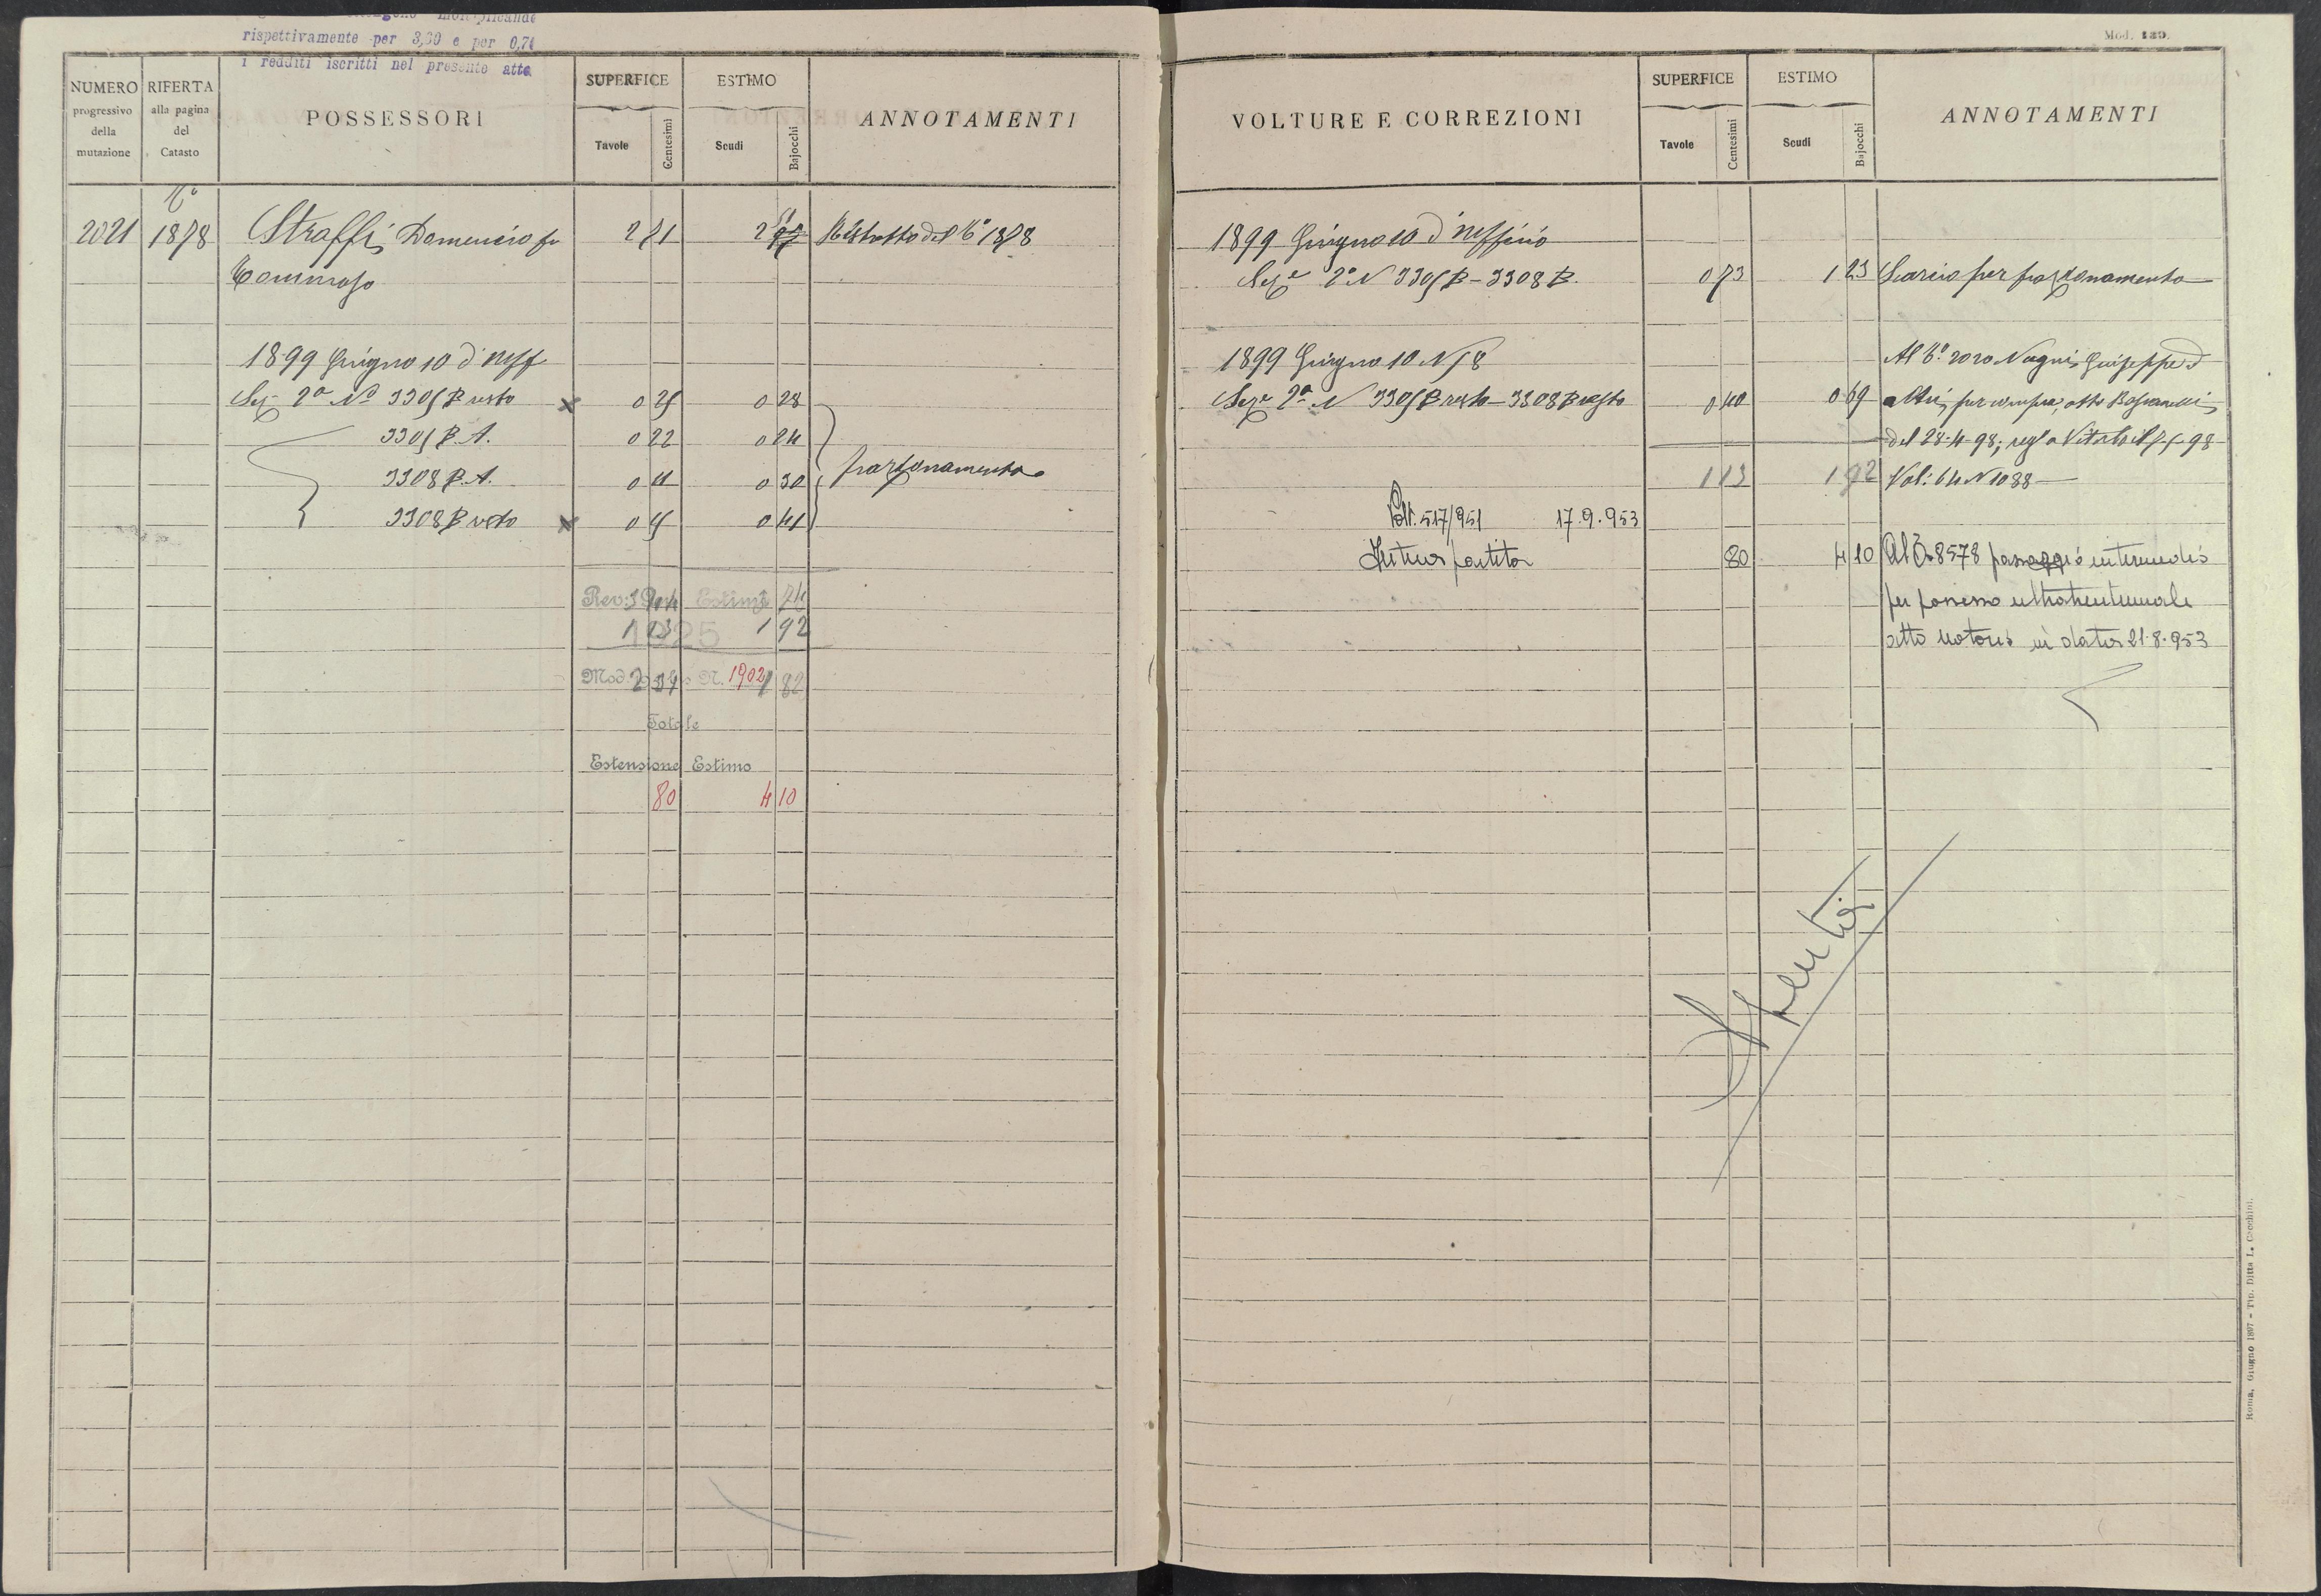 rispettivamente per 3,30 e per 0,74
i redditi iscritti nel presente atto
NUMERO progressivo della mutazione
RIFERTA alla pagina del Catasto
POSSESSORI
SUPERFICE
Tavole Centesimi
ESTIMO
Scudi Bajocchi
ANNOTAMENTI
No
2021 1878 Straffi Domenico fu 2 71 2 Ristretto del No 1878
Tommaso
1899 Giugno 10 d'uff
Sez 2a No 3305 B resto x 0 25 0 28
3305 B. A. 0 22 0 24
3308 B. A. 0 0 30 frazionamento
3308 B resto x 0 0 41
Rev. Estimi 74
1925 1 13 1 92
Mod. N. 1902 82
Totale
Estensione Estimo
80 4 10
Mod. 139.
VOLTURE E CORREZIONI
SUPERFICE
Tavole Centesimi
ESTIMO
Scudi Bajocchi
ANNOTAMENTI
1899 Giugno 10 d'uffizio
Seze 2a N 3305 B - 3308 B. 0 73 1 23 Scarico per frazionamento
1899 Giugno 10 N 58 Al No 2020 Giuseppe ed
Seze 2a N 3305 B resto - 3308 B resto 0 40 0 69 altri, per compra, atto
del 28-4-98; rego Viterbo il 98
1 13 1 92 Vol: 64 N 1088
Volt. 517/951 17.9.953
Intera partita 80 4 10 Al 8578 passaggio intermedio
per possesso ultratrentennale
atto notorio in data 21-8-953
Spenta
Roma, Giugno 1897 - Tip. Ditta L. Cecchini.